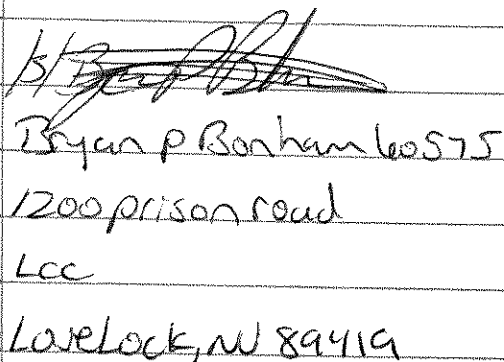 /s/ Bryan P Bonham
Bryan p Bonham 60575
1200 prison road
LCC
Lovelock, NV 89419